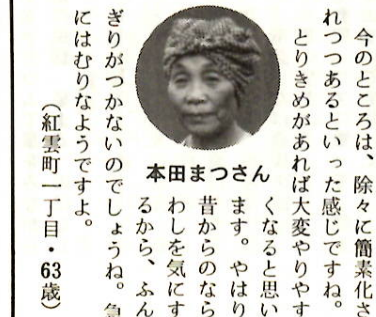 今のところは、除々に簡素化さ
れつつあるといった感じですね。
とりきめがあれば大変やりやす
くなると思い
ます。やはり
昔からのなら
わしを気にす
るから、ふん
ぎりがつかないのでしょうね。急
にはむりなようですよ。
(紅雲町一丁目・63歳)
本田まつさん